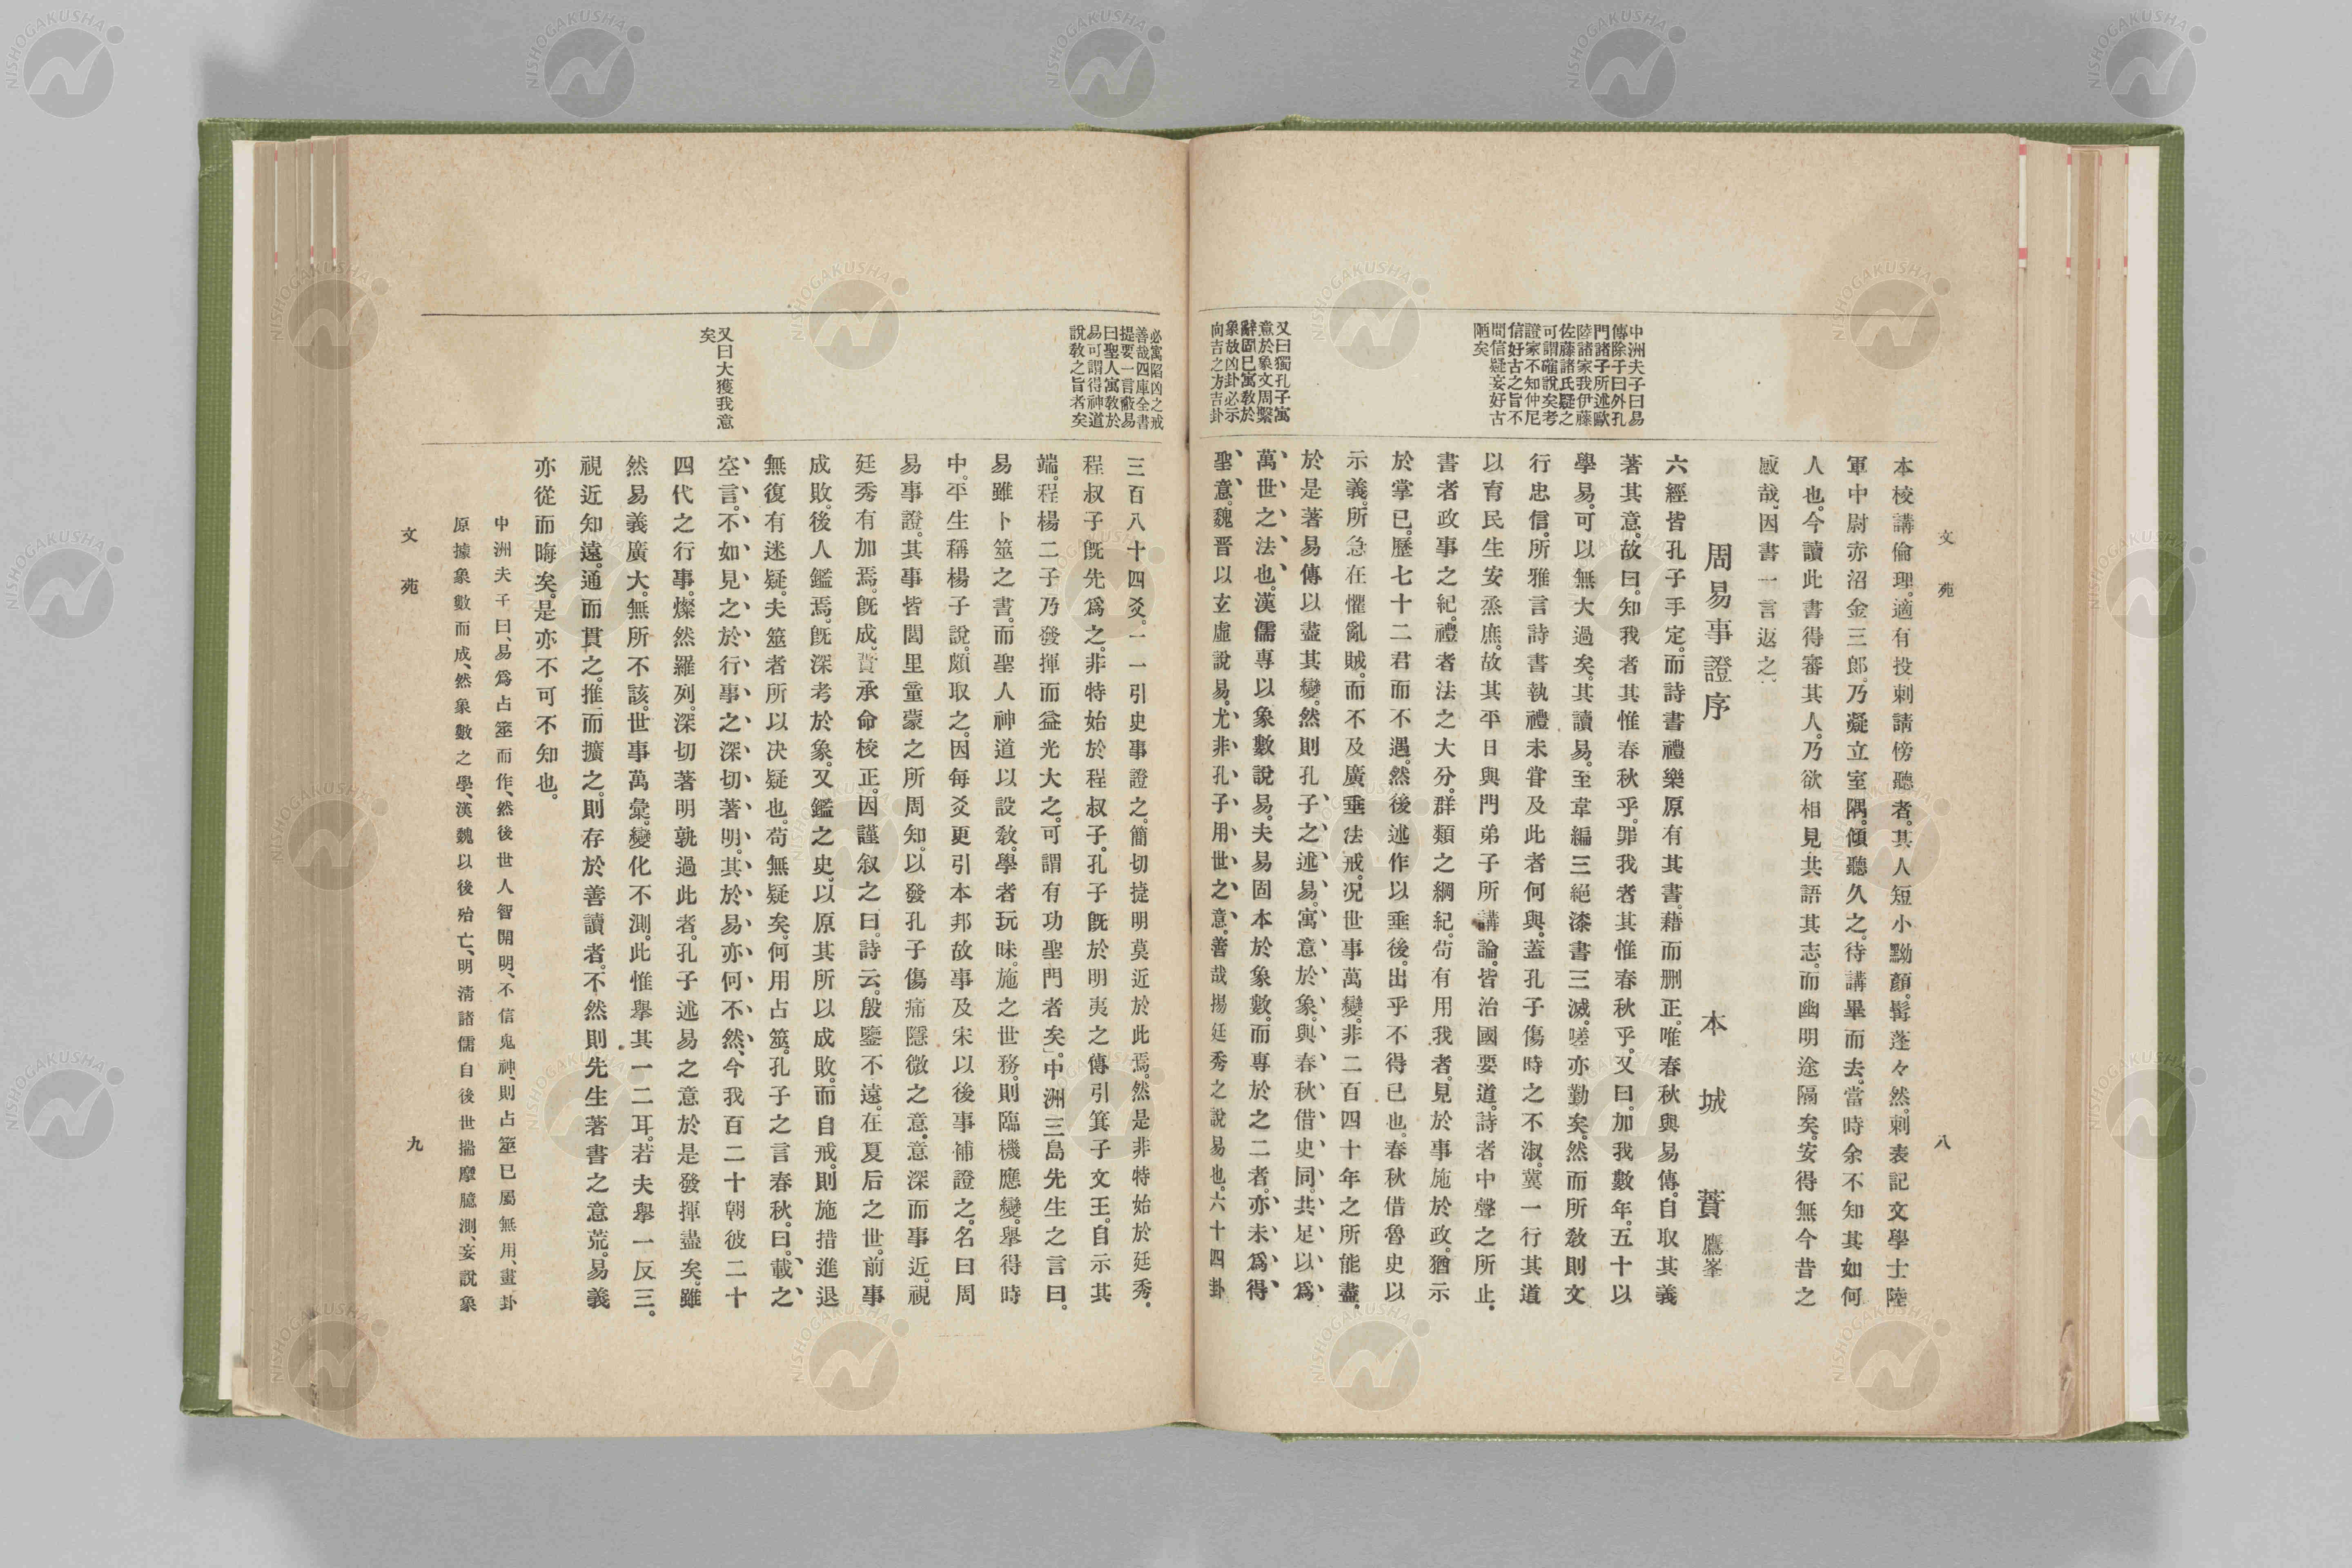 文苑
八
中洲夫子曰易
傳除子曰外孔
門諸子所述歐
陸諸家我伊藤
佐藤諸氏疑之
可謂確說矣考
證家不知仲尼
信好古之旨不
問信疑妄好古
陋矣
又曰獨孔子寓
意於象文周繫
辭固已寓敎於
象故凶卦必示
向吉之方吉卦
本校講倫理。適有投刺請傍聽者。其人短小黝顏。髯蓬々然。刺表記文學士陸
軍中尉亦沼金三郎。乃凝立室隅。傾聽久之。待講畢而去。當時余不知其如何
人也。今讀此書得審其人。乃欲相見共語其志。而幽明途隔矣。安得無今昔之
感哉。因書一言返之、
周易事證序
本城蕡鷹峯
六經皆孔子手定。而詩書禮樂原有其書。藉而删正。唯春秋與易傳。自取其義
著其意。故曰。知我者其惟春秋乎。罪我者其惟春秋乎。又曰。加我數年。五十以
學易。可以無大過矣。其讀易。至韋編三絕漆書三滅。嗟亦勤矣。然而所敎則文
行忠信。所雅言詩書執禮未甞及此者何與。蓋孔子傷時之不淑。冀一行其道
以育民生安烝庶。故其平日與門弟子所講論。皆治國要道。詩者中聲之所止。
書者政事之紀。禮者法之大分。群類之綱紀。苟有用我者。見於事施於政。猶示
於掌已。歷七十二君而不遇。然後述作以垂後。出乎不得已也。春秋借魯史以
示義。所急在懼亂賊。而不及廣垂法戒。況世事萬變。非二百四十年之所能盡。
於是著易傳以盡其變。然則孔子之述易。寓意於象。與春秋借史同。其足以爲
萬世之法也。漢儒專以象數說易。夫易固本於象數。而專於之二者。亦未爲得
聖意。魏晋以玄虛說易。尤非孔子用世之意。善哉揚廷秀之說易也。六十四卦
必寓陷凶之戒
善哉四庫全書
提要一言蔽易
曰聖人寓敎於
易可謂得神道
說敎之旨者矣
又曰大獲我意
矣
三百八十四爻。一一引史事證之。簡切捷明莫近於此焉。然是非特始於廷秀。
程叔子既先爲之。非特始於程叔子。孔子既於明夷之傳引箕子文王。自示其
端。程楊二子乃發揮而益光大之。可謂有功聖門者矣。中洲三島先生之言曰。
易雖卜筮之書。而聖人神道以設敎。學者玩味。施之世務。則臨機應變。舉得時
中。平生稱楊子說。頗取之。因每爻更引本邦故事及宋以後事補證之。名曰周
易事證。其事皆閭里童蒙之所周知。以發孔子傷痛隱微之意。意深而事近。視
廷秀有加焉。既成。蕡承命校正。因謹叙之曰。詩云。殷鑒不遠。在夏后之世。前事
成敗。後人鑑焉。既深考於象。又鑑之史。以原其所以成敗。而自戒。則施措進退
無復有迷疑。夫筮者所以決疑也。苟無疑矣。何用占筮。孔子之言春秋。曰。載之
空言。不如見之於行事之深切著明。其於易亦何不然、今我百二十朝彼二十
四代之行事。燦然羅列。深切著明孰過此者。孔子述易之意於是發揮盡矣。雖
然易義廣大。無所不該。世事萬彙。變化不測。此惟舉其一二耳。若夫舉一反三。
視近知遠。通而貫之。推而擴之。則存於善讀者。不然則先生著書之意荒。易義
亦從而晦矣。是亦不可不知也。
中洲夫子曰、易爲占筮而作、然後世人智開明、不信鬼神、則占筮已屬無用、畫卦
原據象數而成、然象數之學、漢魏以後殆亡、明淸諸儒自後世揣摩臆測、妄說象
文苑
九